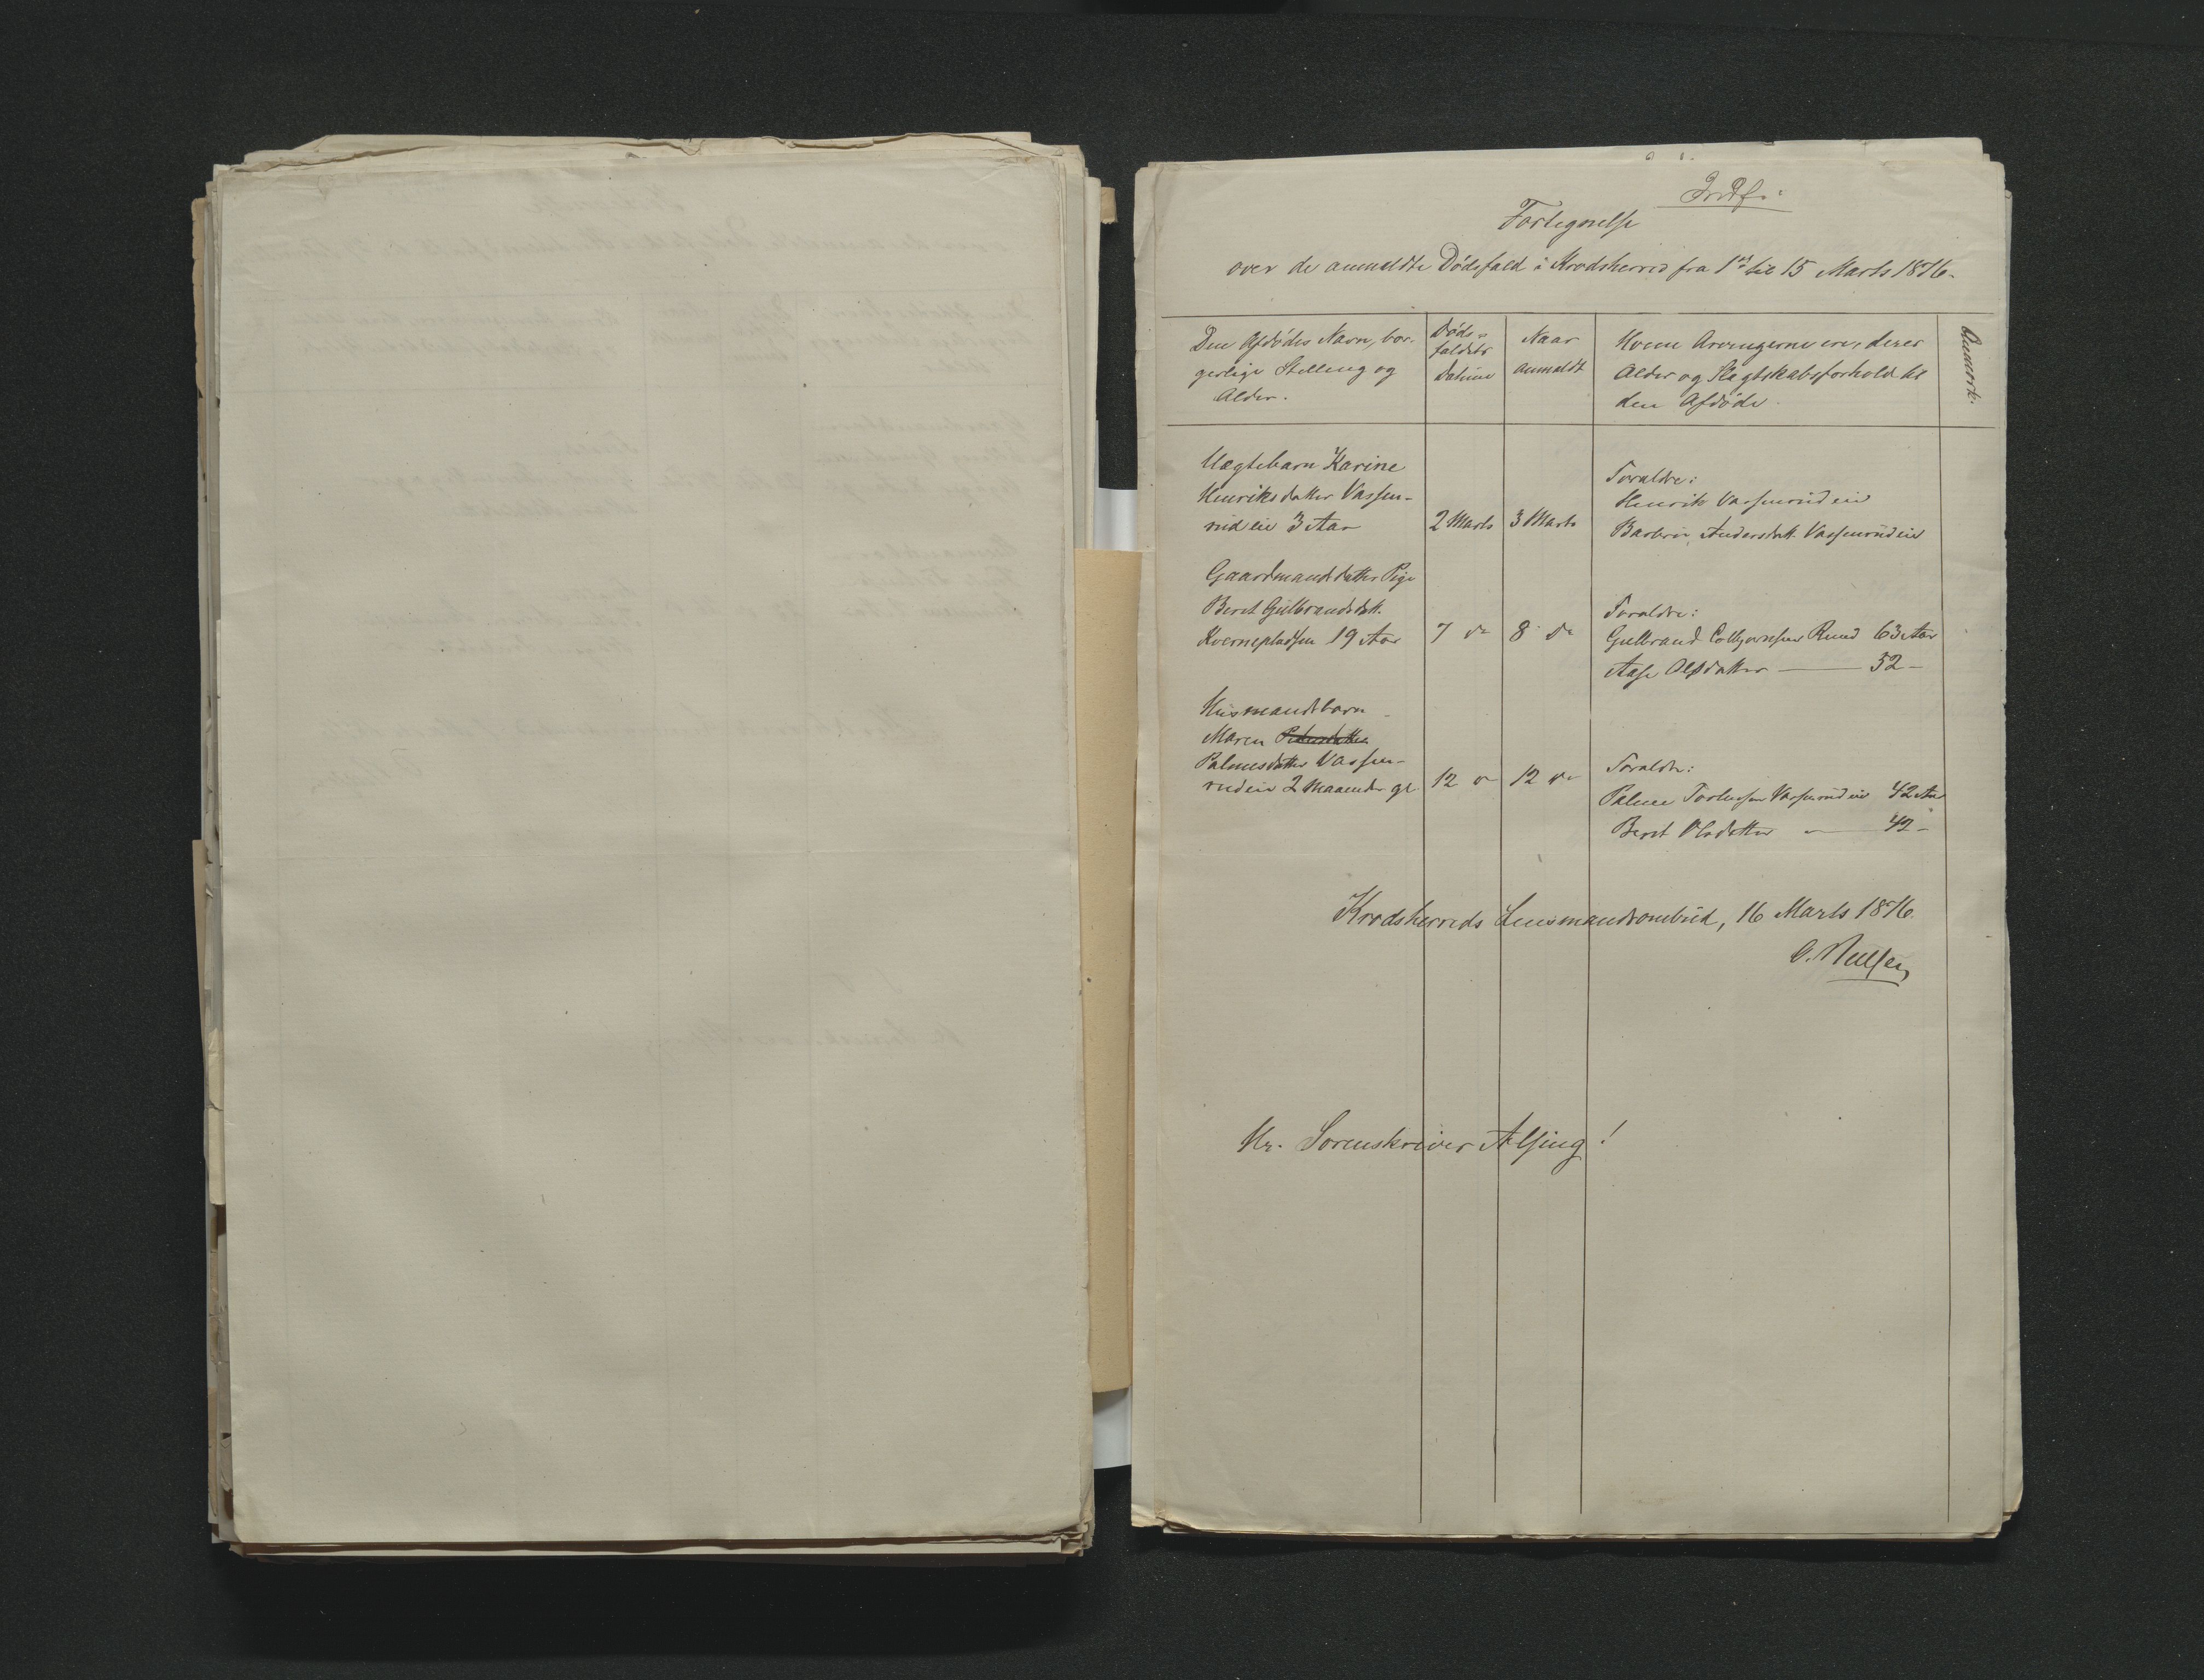 Fortegnelse
over de anmeldte Dödsfald i Krodsherred fra 1ste til 15 Marts 1876.
Den Afdödes Navn, bor-
gerlige Stilling og
Alder.
Döds-
faldets
Datum
Naar
anmeldt
Hvem Arvingerne ere, deres
Alder og Slægtskabsforhold til
den Afdöde.
Anmærk.
Uægtebarn Karine
Henriksdatter Vassen-
rudeie 3 Aar
2 Marts
3 Marts
Foraldre:
Henrik Vassenrudeie
Barbro Andersdatt. Vassenrudeie
Gaardmandsdatter Pige
Beret Gulbrandsdatt.
Kvernepladsen 19 Aar
7 do
8 do
Foraldre:
Gulbrand Colbjørnsen Ruud 63 Aar
Aase Olsdatter — 52 –
Husmandsbarn
Maren
Palmesdatter Vassen-
rudeie 2 Maaneder gl.
12 do
12 do
Foraldre:
Palme Vassenrudeie 42 Aar
Beret Olsdatter — 42 –
Krodsherreds Lensmandsombud, 16 Marts 1876.
O. Nielsen
Hr. Sorenskriver Alsing!